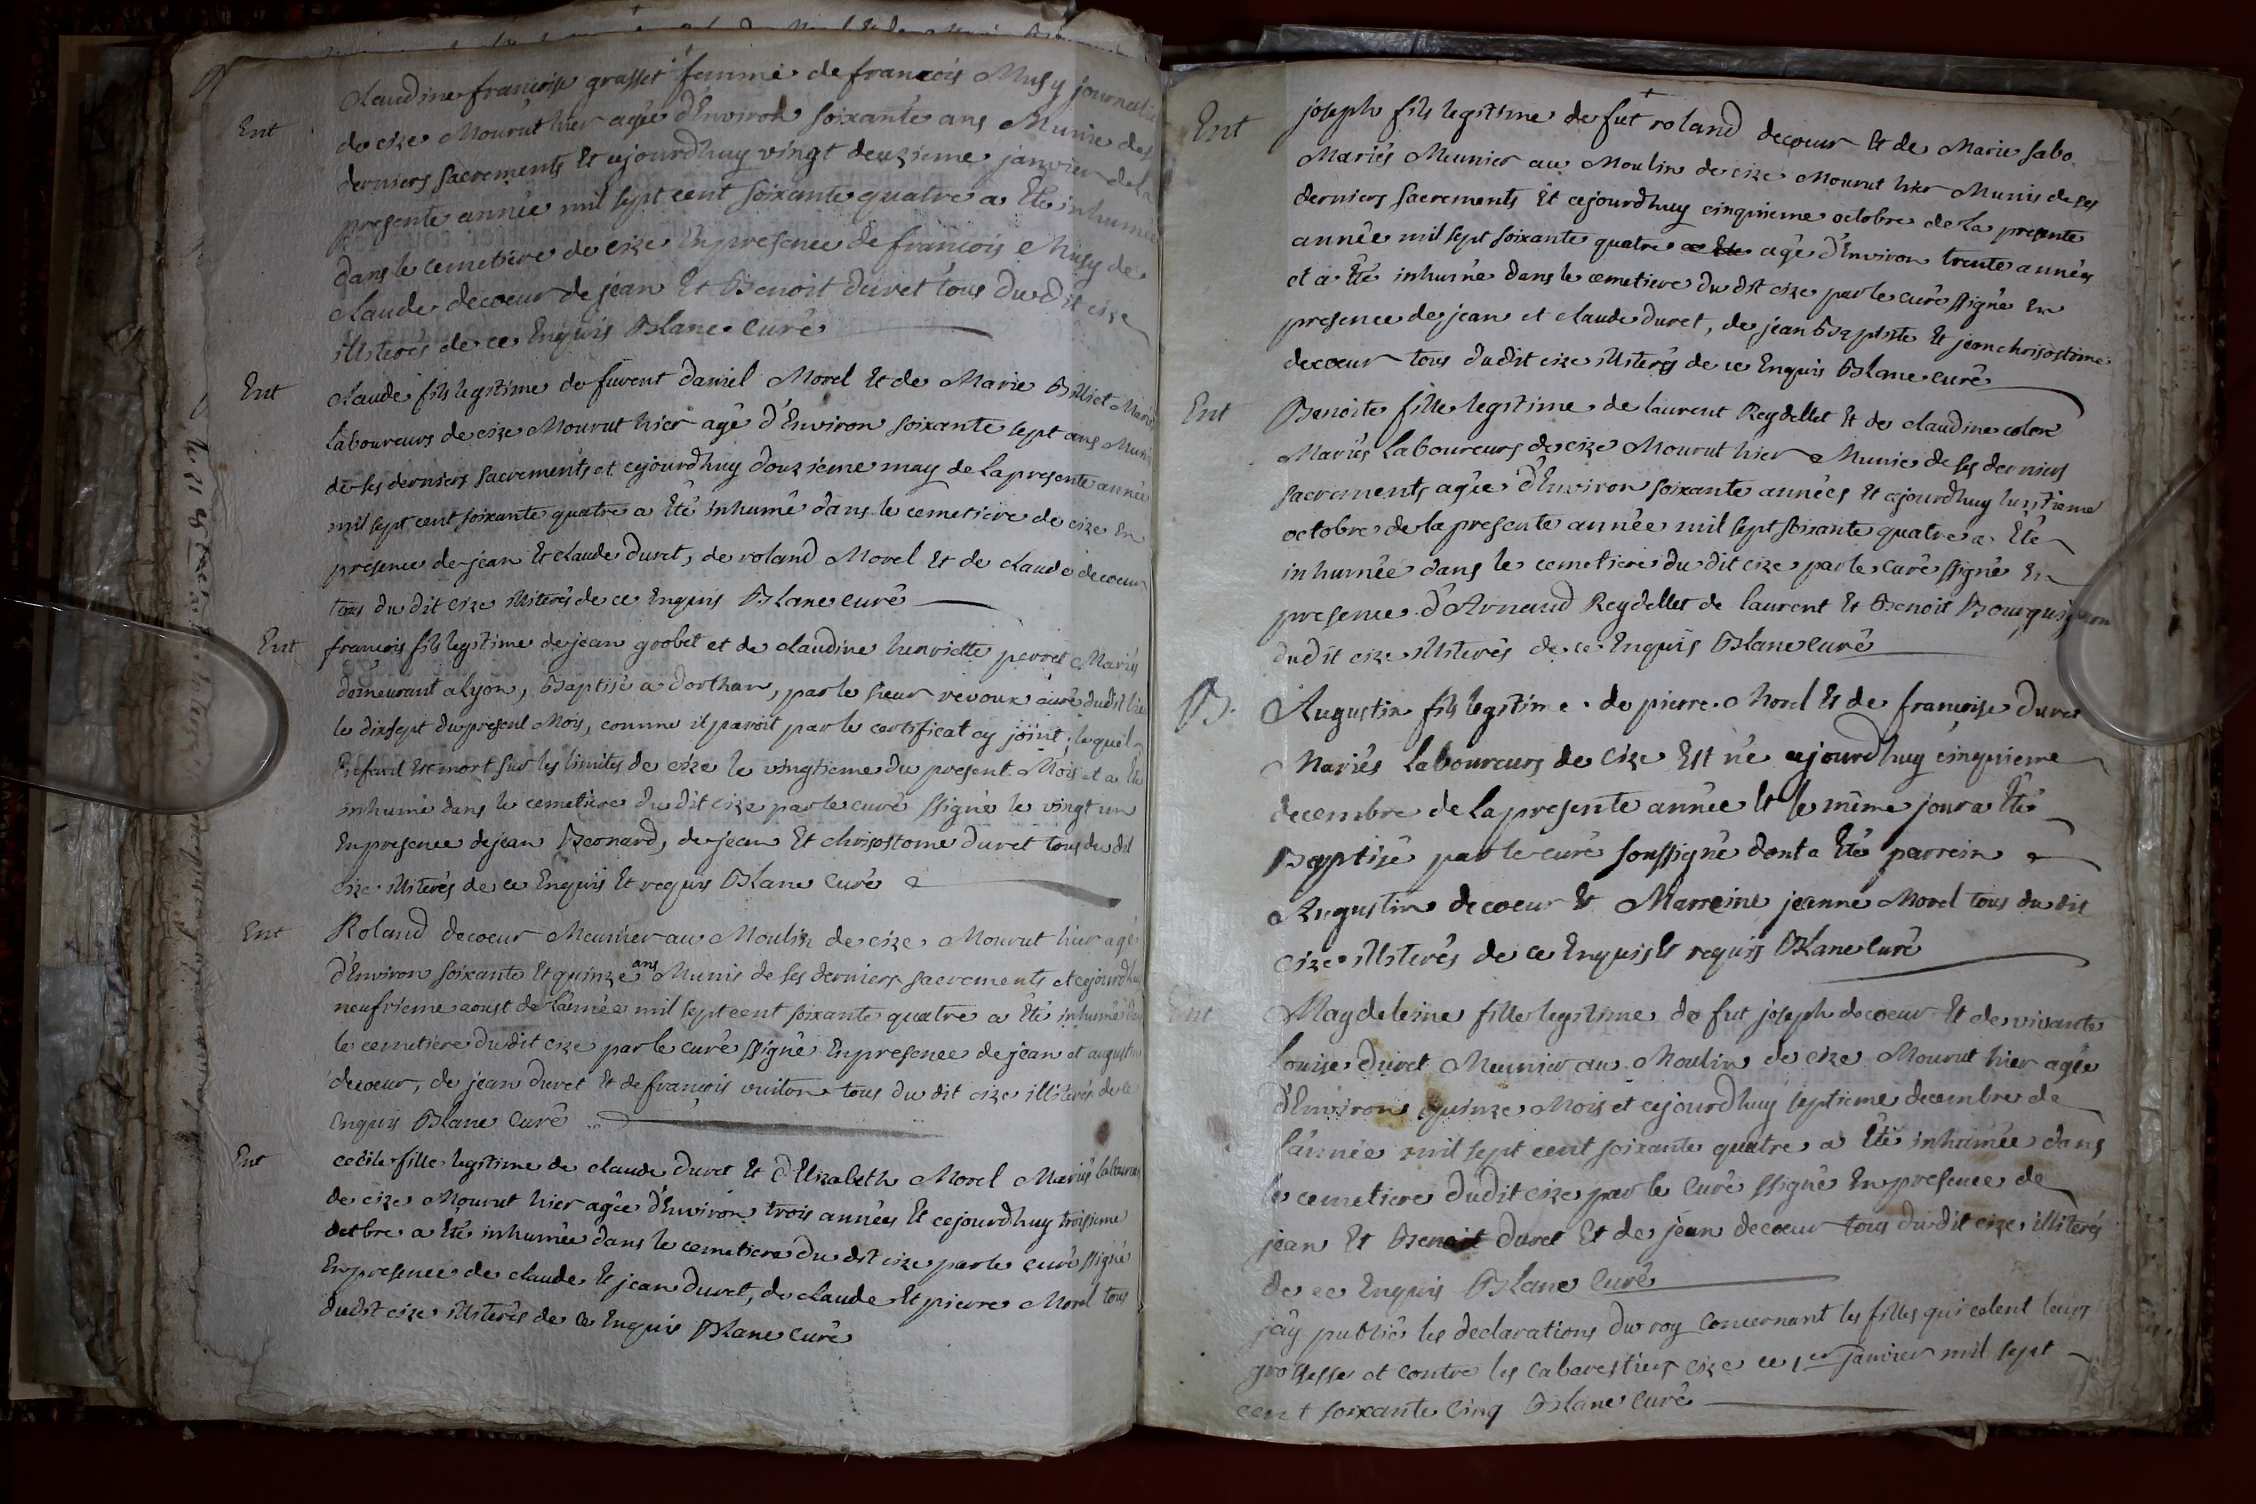 Claudine françoise grasset femme de françois Musy journalie
Ent
de cize Mourut hier agée d'Environ soixante ans Munie des
derniers sacrements Et cejourdhuy vingt deuzieme janvier de la
presente année mil sept cent soixante quatre a Eté inhumée
dans le cemetiere de cize En presence de françois Musy de
claude decoeur de jean Et Benoit duret tous du dit cize
illiterés de ce Enquis Blanc Curé
Ent
claude fils legitime de furent daniel Morel Et de Marie Billiet Mariés
laboureurs de cize Mourut hier agé d'Environ soixante sept ans Muni
de ses derniers sacrements et cejourdhuy douzieme may de la presente année
mil sept cent soixante quatre a Eté inhumé dans le cemetiere de cize En
presence de jean Et claude duret, de roland Morel Et de claude decoeur
tous du dit cize illiterés de ce Enquis Blanc curé
Ent
francois fils legitime de jean goobet et de claudine henriette perret Mariés
demeurant a lyon, Baptisé a dorthan, par le sieur revoux curé dudit lieu
le dixsept du present Mois, comme il paroit par le certificat cy joint, lequel
Enfant Est mort sur les limites de cize le vingtieme du present Mois et a Eté
inhumé dans le cemetiere du dit cize par le curé ssigné le vingt un
En presence de jean Bernard, de jean Et chrisostome duret tous du dit
cize illiterés de ce Enquis Et requis Blanc Curé
Ent
Roland decoeur Meunier au Moulin de cize Mourut hier agé
d'Environ soixante Et quinze ans Munis de ses derniers sacrements et cejourdhuy
neufvieme aoust de l'année mil sept cent soixante quatre a Eté inhumé dans
le cemetiere du dit cize par le curé ssigné En presence de jean et augustin
decoeur, de jean duret Et de françois vuiton tous du dit cize illiterés de ce
Enquis Blanc Curé
Ent
cecile fille legitime de claude duret Et d'Elizabeth Morel Mariés laboureurs
de cize Mourut hier agée d'Environ trois années Et cejourdhuy troisieme
octbre a Eté inhumée dans le cemetiere du dit cize par le curé ssigné
En presence de claude Et jean duret, de claude Et pierre Morel tous
dudit cize illiterés de ce Enquis Blanc Curé
Ent
joseph fils legitime de fut roland decoeur Et de Marie sabo
Mariés Meunier au Moulin de cize Mourut hier Munis de ses
derniers sacrements Et cejourdhuy cinquieme octobre de la presente
année mil sept soixante quatre a Eté agé d'Environ trente années
et a Eté inhumé dans le cemetiere du dit cize par le curé ssigné En
presence de jean et claude duret, de jean Baptiste Et jean chrisostime
decoeur tous dudit cize illiterés de ce Enquis Blanc curé
Ent
Benoite fille legitime de laurent Reydellet Et de claudine
Mariés laboureurs de cize Mourut hier Munie de ses derniers
sacrements agée d'Environ soixante années Et cejourdhuy huitieme
octobre de la presente année mil sept soixante quatre a Eté
inhumée dans le cemetiere du dit cize par le Curé ssigné En
presence d'Arnaud Reydellet de laurent Et Benoit Bourguignon
dudit cize illiterés de ce Enquis Blanc curé
B.
Augustin fils legitime de pierre Morel Et de françoise duret
Mariés laboureurs de Cize Est né cejourdhuy cinquieme
decembre de la presente année Et le même jour a Eté
Baptisé par le curé soussigné dont a Eté parrein
Augustin decoeur Et Marreine jeanne Morel tous du dit
cize illiterés de ce Enquis Et requis Blanc Curé
Ent
Magdeleine fille legitime de fut joseph decoeur Et de vivante
louise duret Meunier au Moulin de cize Mourut hier agée
d'Environ quinze Mois et cejourdhuy septieme decembre de
l'année mil sept cent soixante quatre a Eté inhumée dans
le cemetiere dudit cize par le Curé ssigné En presence de
jean Et Benoit duret Et de jean decoeur tous du dit cize illiterés
de ce Enquis Blanc Curé
j'ay publié les declarations du roy Concernant les filles qui celent leurs
grossesse et contre les Cabarestiers cize ce 1er janvier mil sept
cent soixante Cinq Blanc Curé